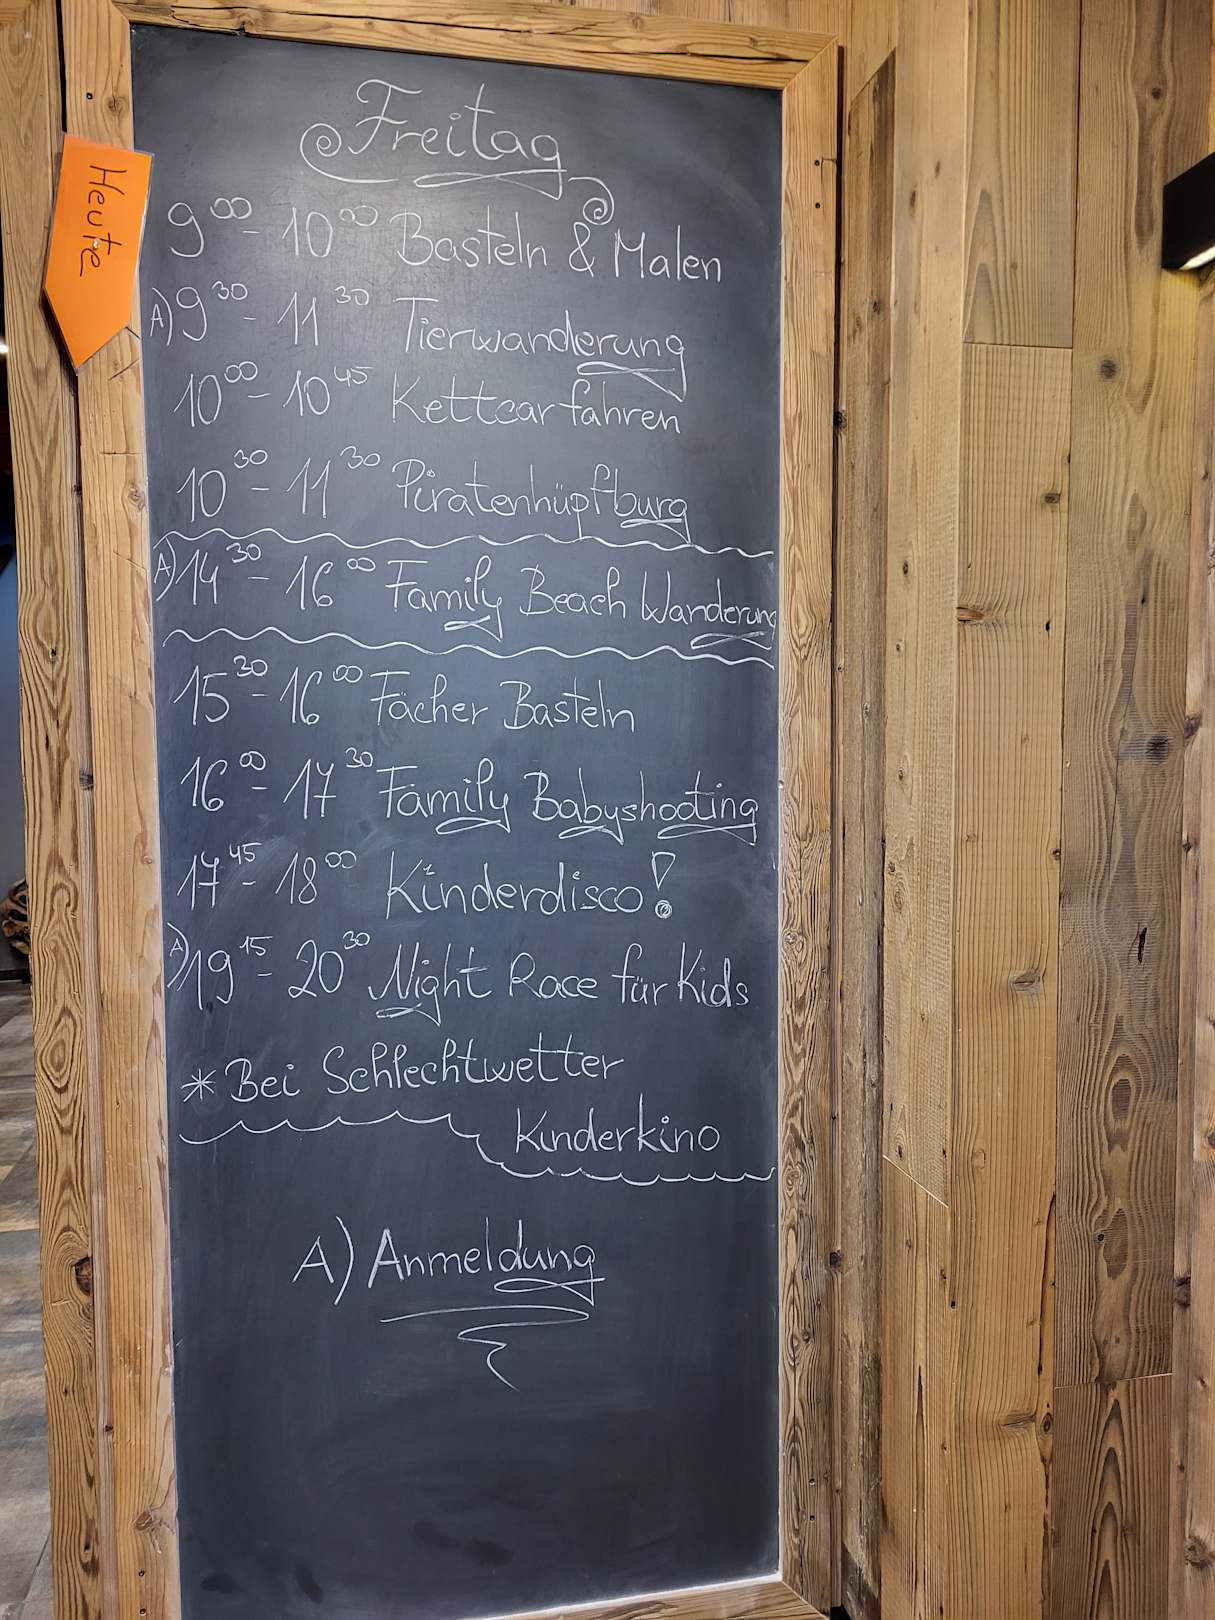 Freitag
Heute
9⁰⁰ - 10⁰⁰ Basteln & Malen
A) 9³⁰ - 11³⁰ Tierwanderung
10⁰⁰ - 10⁴⁵ Kettcar fahren
10³⁰ - 11³⁰ Piratenhüpfburg
A) 14³⁰ - 16⁰⁰ Family Beach Wanderung
15³⁰ - 16⁰⁰ Fächer Basteln
16⁰⁰ - 17³⁰ Family Babyshooting
17⁴⁵ - 18⁰⁰ Kinderdisco!
A) 19¹⁵ - 20³⁰ Night Race für Kids
* Bei Schlechtwetter
Kinderkino
A) Anmeldung